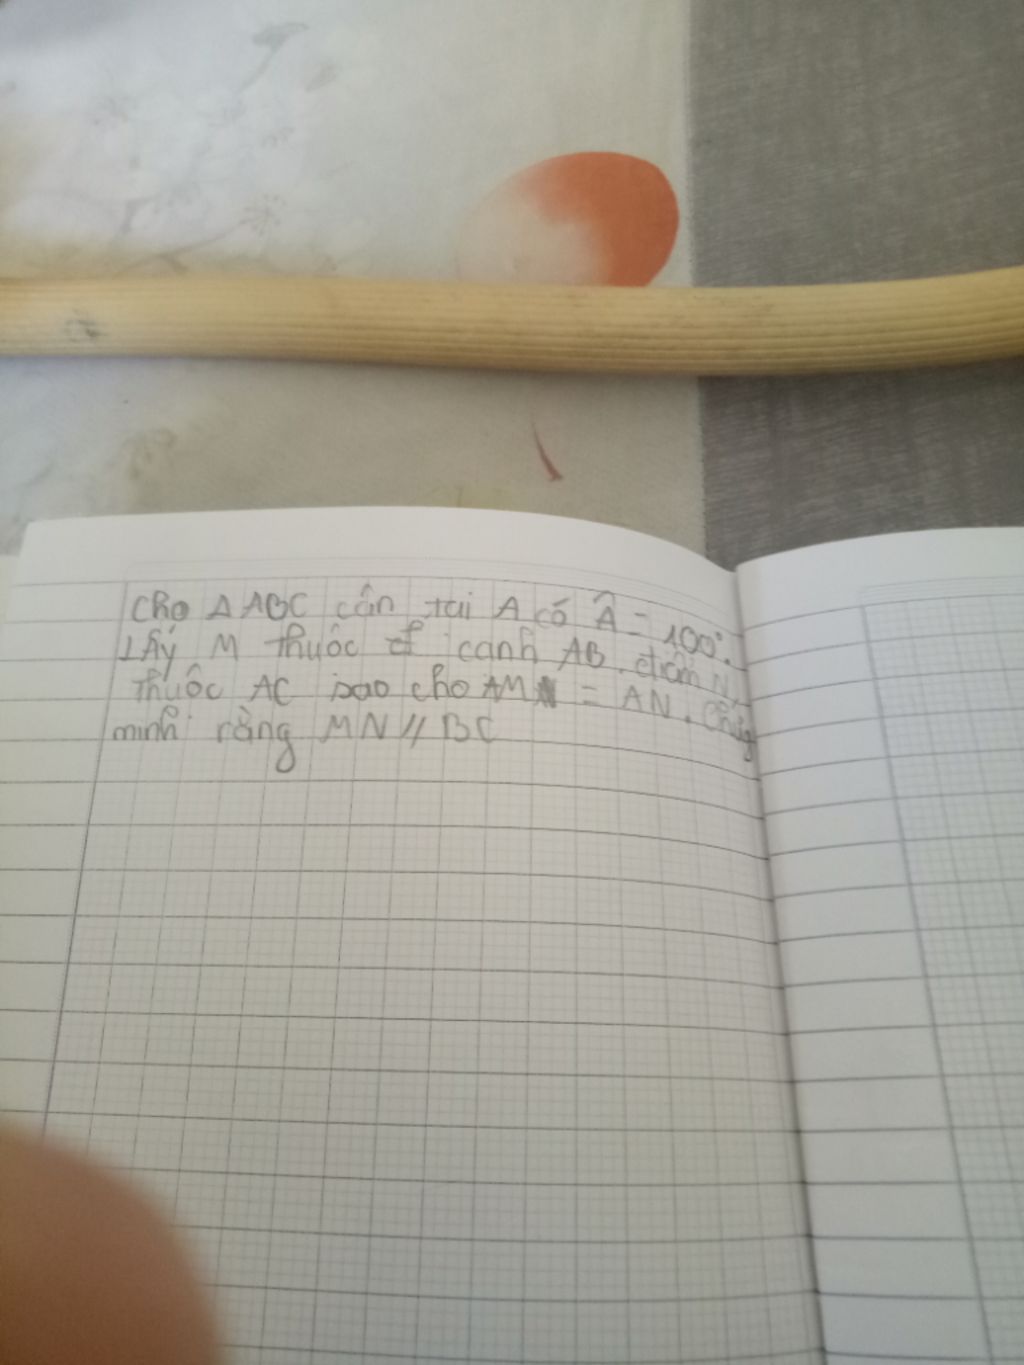 Cho Δ ABC cân tai A có Â = 100°.
Lấy M thuộc cạnh AB. điểm N
thuộc AC sao cho AM = AN. Chứng
minh rằng MN // BC